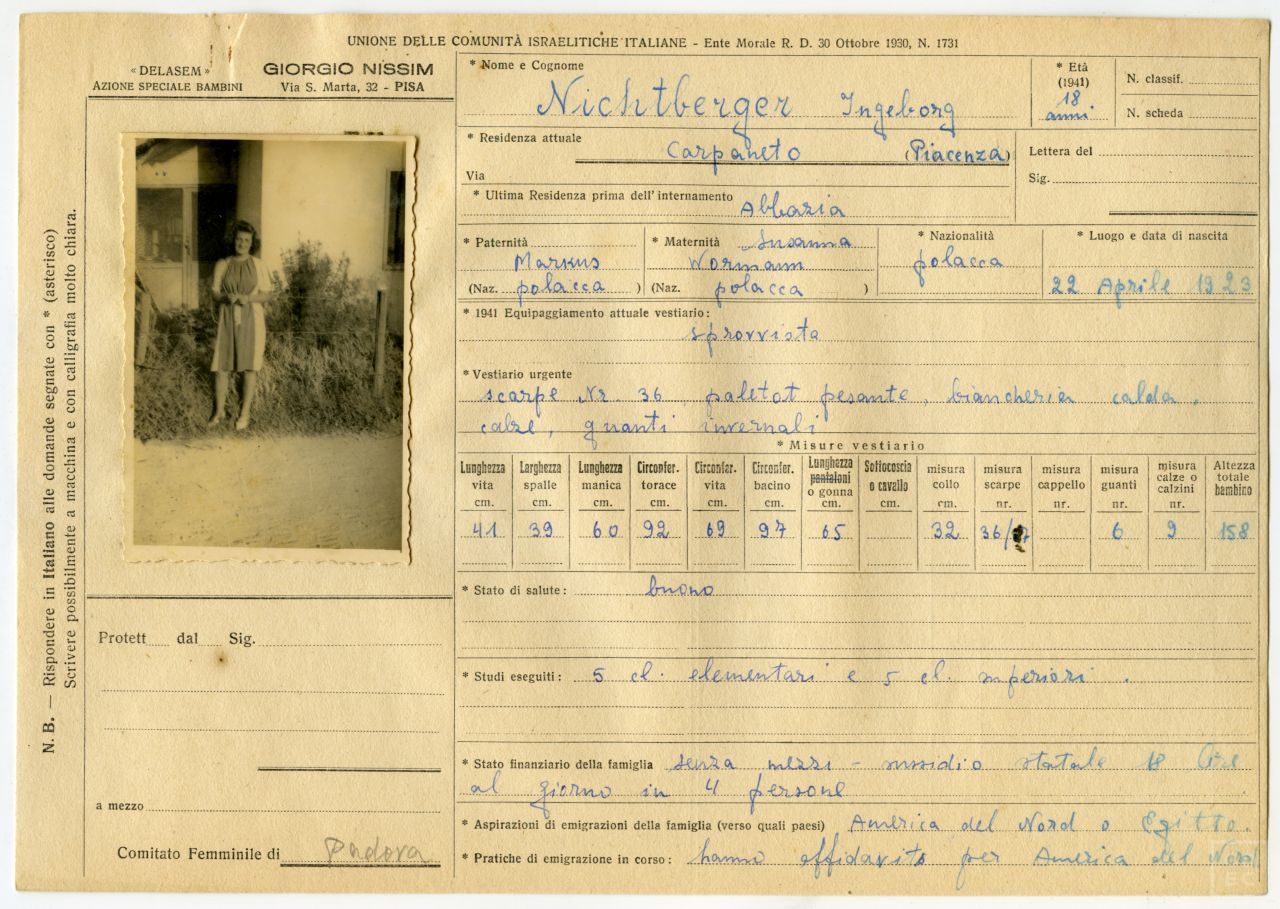 UNIONE DELLE COMUNITÀ ISRAELITICHE ITALIANE - Ente Morale R. D. 30 Ottobre 1930, N. 1731
« DELASEM »
AZIONE SPECIALE BAMBINI
GIORGIO NISSIM
Via S. Marta, 32 - PISA
N. B. — Rispondere in Italiano alle domande segnate con * (asterisco)
Scrivere possibilmente a macchina e con calligrafia molto chiara.
* Nome e Cognome
Nichtberger Ingeborg
* Età
(1941)
18
anni
N. classif.
N. scheda
* Residenza attuale
Carpaneto (Piacenza)
Via
Lettera del
Sig.
* Ultima Residenza prima dell'internamento
Abbazia
* Paternità
Markus
(Naz. polacca )
* Maternità Susanna
Wormann
(Naz. polacca )
* Nazionalità
polacca
* Luogo e data di nascita
22 Aprile 1923
* 1941 Equipaggiamento attuale vestiario:
sprovvista
* Vestiario urgente
scarpe Nr. 36, paletot pesante, biancheria calda,
calze, guanti invernali
* Misure vestiario
Lunghezza vita cm. 41
Larghezza spalle cm. 39
Lunghezza manica cm. 60
Circonfer. torace cm. 92
Circonfer. vita cm. 69
Circonfer. bacino cm. 97
Lunghezza pantaloni o gonna cm. 65
Sottocoscia o cavallo cm.
misura collo cm. 32
misura scarpe nr. 36/37
misura cappello nr.
misura guanti nr. 6
misura calze o calzini nr. 9
Altezza totale bambino 158
* Stato di salute: buono
Protett dal Sig.
* Studi eseguiti: 5 cl. elementari e 5 cl. superiori.
* Stato finanziario della famiglia senza mezzi - sussidio statale 18 Lire
al giorno in 4 persone
a mezzo
* Aspirazioni di emigrazioni della famiglia (verso quali paesi) America del Nord o Egitto.
Comitato Femminile di Padova
* Pratiche di emigrazione in corso: hanno affidavits per America del Nord